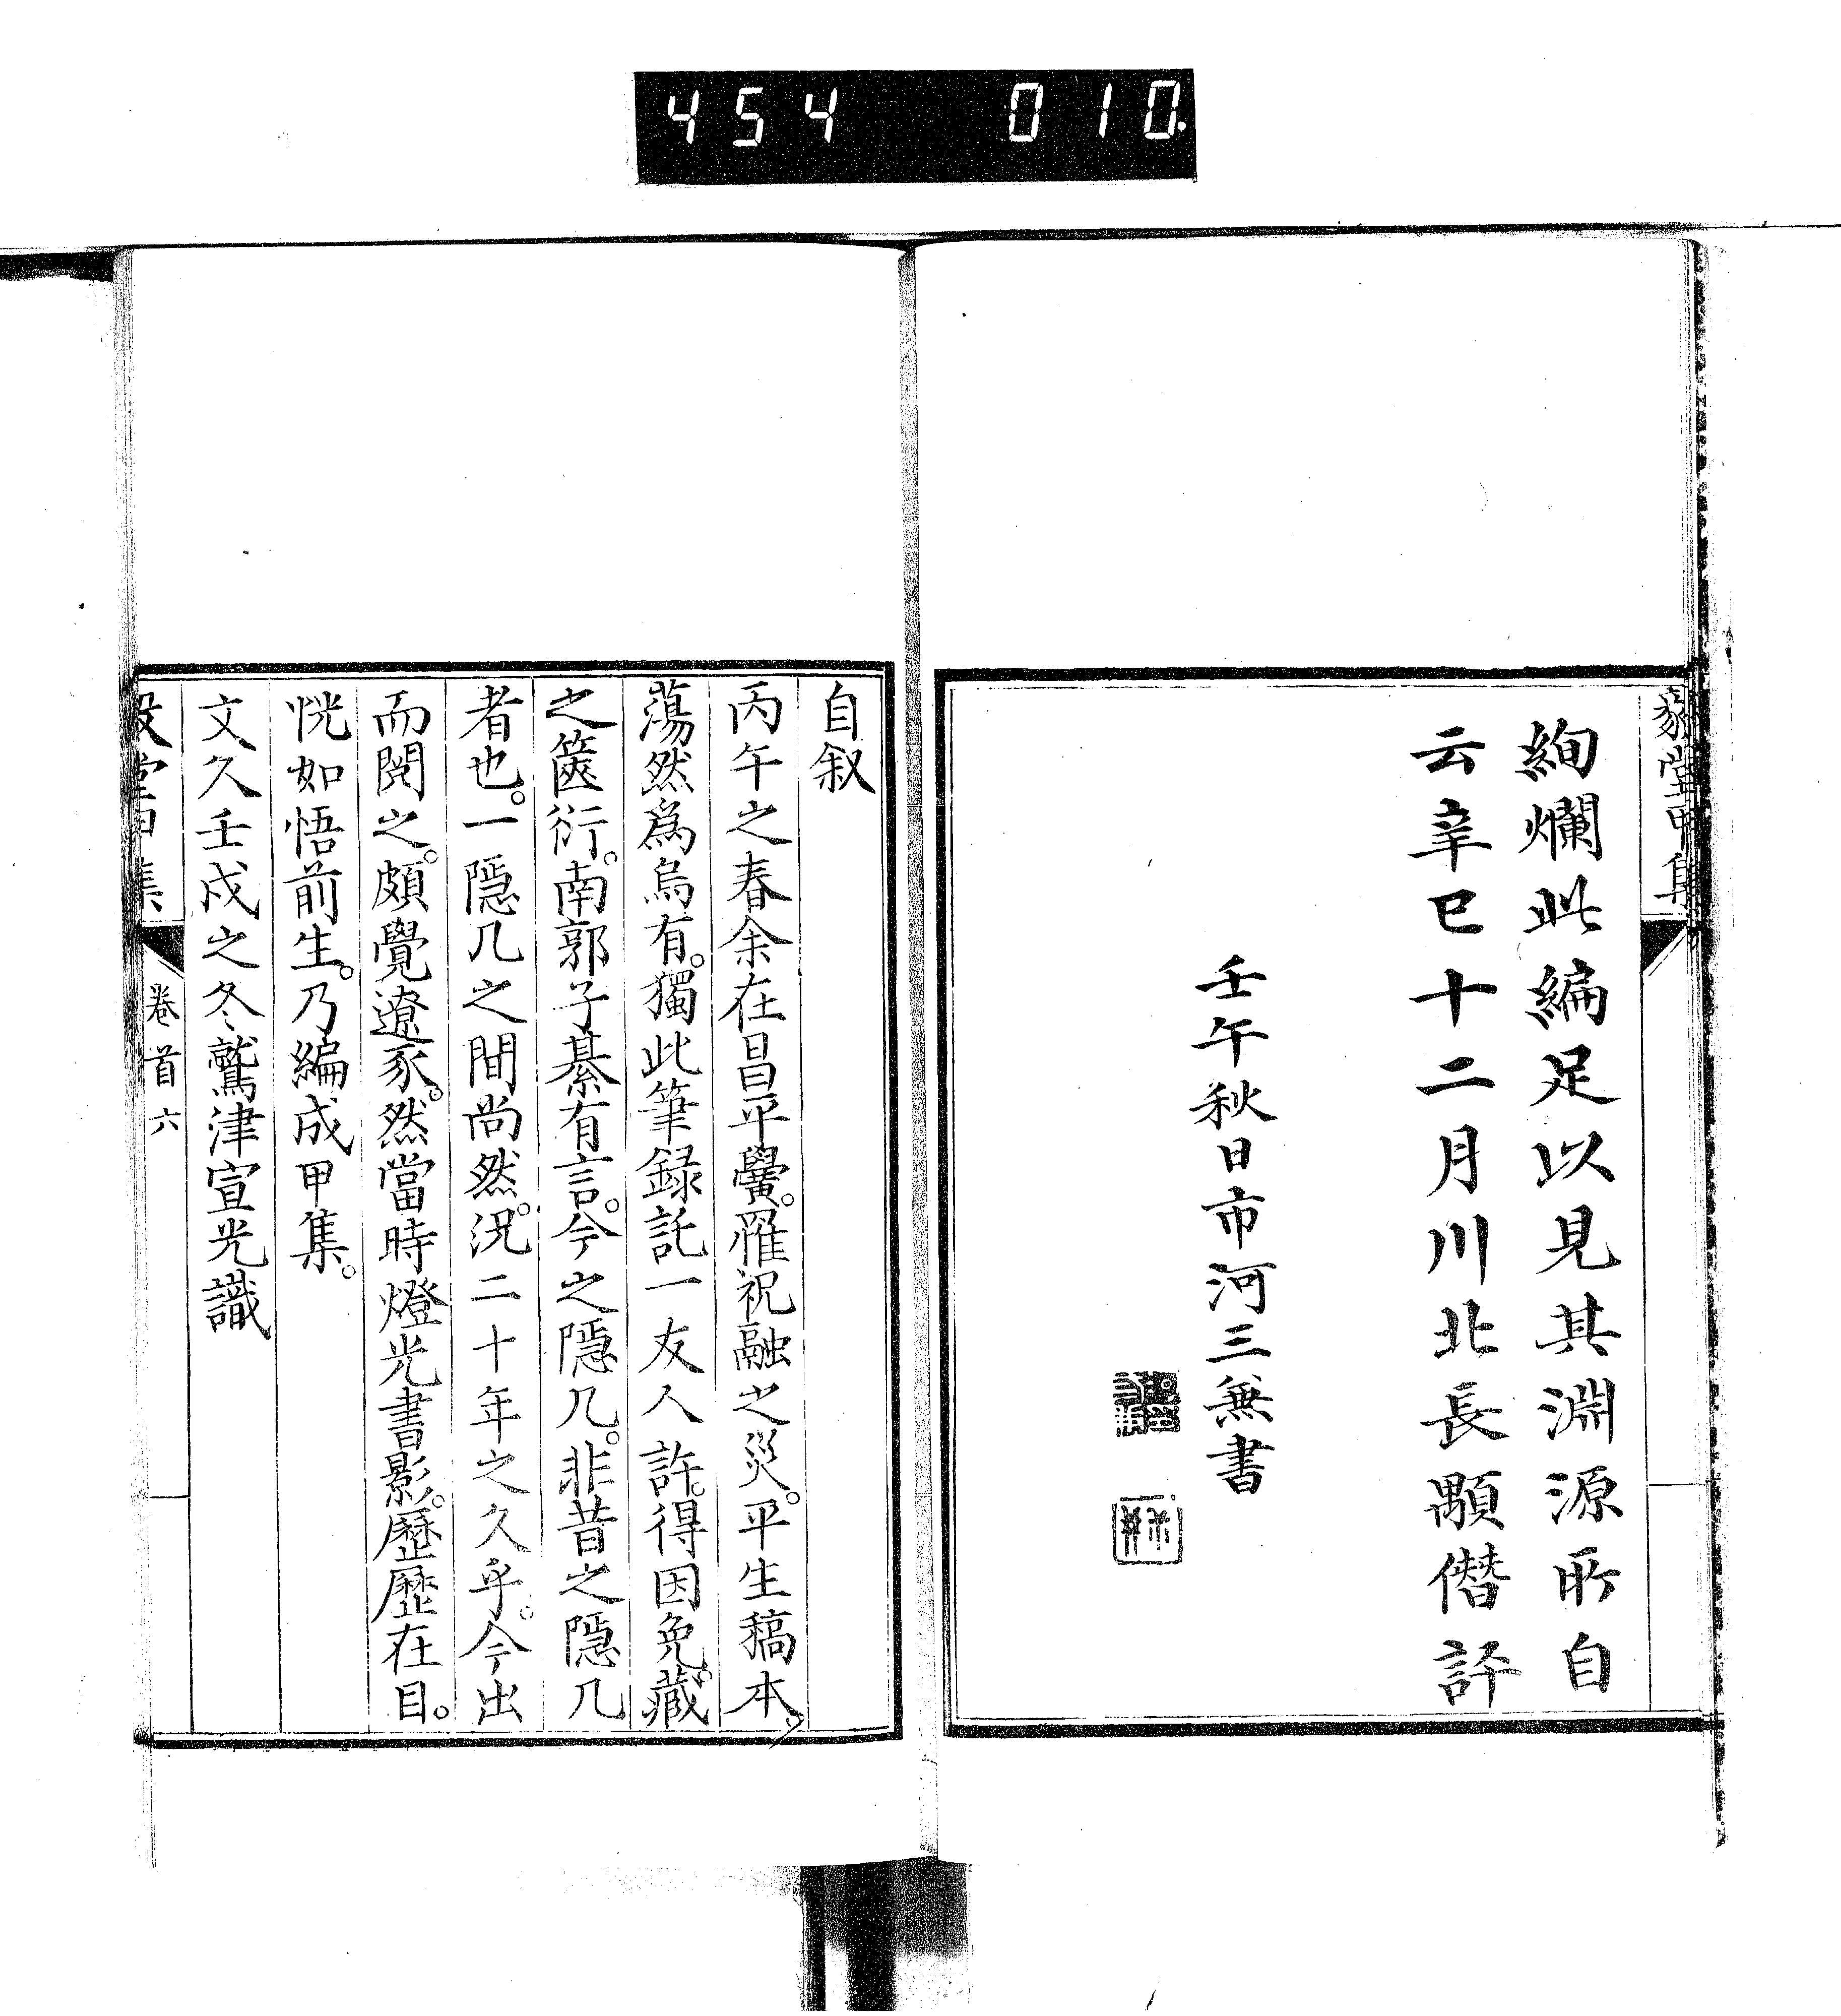 454 010.
毅堂甲集
絢爛此編足以見其淵源所自
云辛巳十二月川北長顒僭評
壬午秋日市河三兼書
自叙
丙午之春余在昌平黌。罹祝融之災。平生稿本。
蕩然為烏有。獨此筆録託一友人許。得因免。藏
之篋衍。南郭子綦有言。今之隠几。非昔之隠几
者也。一隠几之間尚然。況二十年之久乎。今出
而閲之。頗覺遼豕。然當時燈光書影。歴歴在目。
恍如悟前生。乃編成甲集。
文久壬戌之冬鷲津宣光識
毅堂甲集
卷首
六